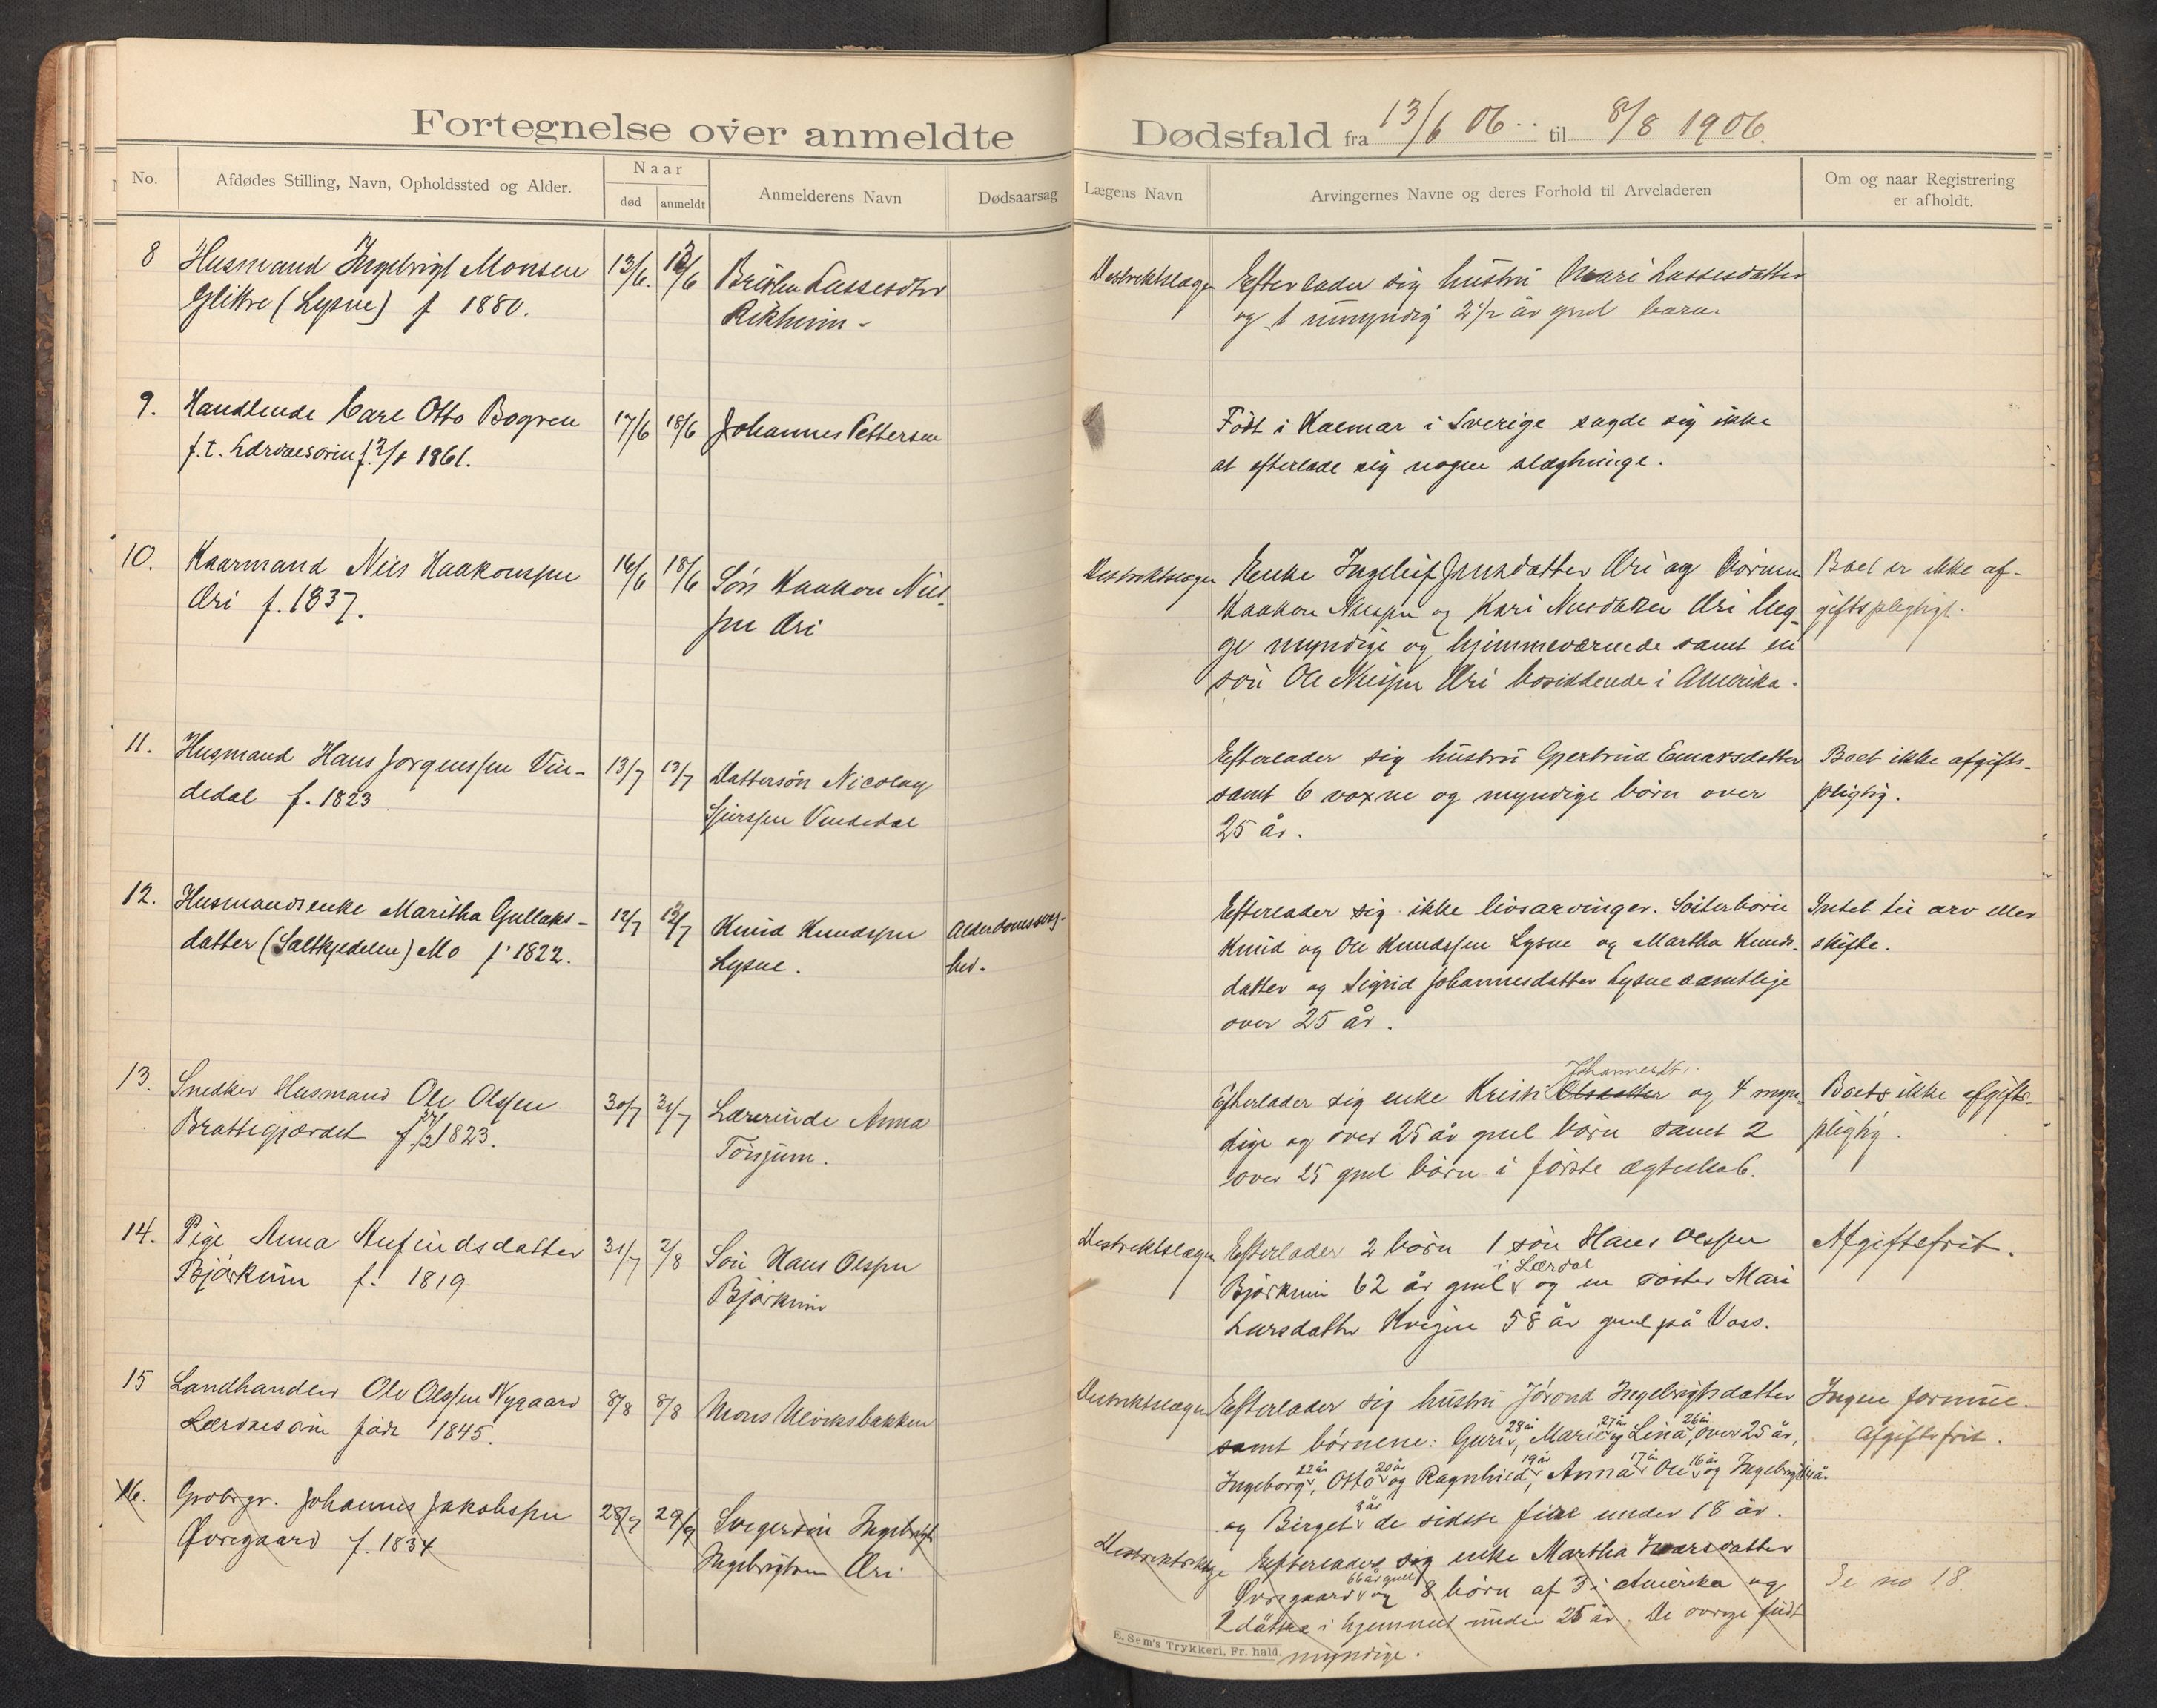 Fortegnelse over anmeldte Dødsfald fra 13/6 06 til 8/8 1906.
No.
Afdødes Stilling, Navn, Opholdssted og Alder.
Naar
død
anmeldt
Anmelderens Navn
Dødsaarsag
Lægens Navn
Arvingernes Navne og deres Forhold til Arveladeren
Om og naar Registrering
er afholdt.
8
Husmand Ingebrigt Monsen
Glittre (Lysne) f 1880.
13/6.
13/6
Lassesdtr
Rikheim
Distriktslægen
Efterlader sig hustru Mari Lassesdatter
og 1 umyndig 2 1/2 år gml barn.
9.
Handlende Carl Otto Bogren
f.t. Lærdalsøren f. 1861.
17/6
18/6
Johannes Pettersen
Født i Kalmar i Sverige sagde sig ikke
at efterlade sig nogen slægtninge.
10.
Kaarmand Nils Haakonssen
Øri f. 1837.
16/6
18/6
Søn Haakon Nils-
sen Øri
Distriktslægen
Enke Ingeleif Jensdatter Øri og børnene
Haakon Nilssen og Kari Nilsdatter Øri beg-
ge myndige og hjemmeværende samt en
søn Ole Nilssen Øri bosiddende i Amerika.
Boet er ikke af-
giftspligtigt.
11.
Husmand Hans Jørgenssen Vin-
dedal f. 1823
13/7
13/7
Dattersøn Nicolay
Sjurssen Vindedal
Efterlader sig hustru Gjertrud Einarsdatter
samt 6 voxne og myndige børn over
25 år.
Boet ikke afgifts-
pligtig.
12.
Husmandsenke Maritha Gullaks-
datter (Saltkjedelen) Mo f. 1822.
12/7
12/7
Knud Knudssen
Lysne.
Alderdomssvag-
hed.
Efterlader sig ikke livsarvinger. Søsterbørn
Knud og Ole Knudssen Lysne og Martha Knuds-
datter og Sigrid Johannesdatter Lysne samtlige
over 25 år.
Intet til arv eller
skifte.
13.
Snedker Husmand Ole Olssen
Brattegjærdet f. 1823.
30/7
31/7
Lærerinde Anna
Tønjum.
Johannesdt.
Efterlader sig enke Kristi Olsdatter og 4 myn-
dige og over 25 år gml børn samt 2
over 25 gml børn i første ægteskab.
Boets ikke afgifts-
pligtig.
14.
Pige Anna Anfindsdatter
Bjørkum f. 1819
31/7
2/8
Søn Hans Olssen
Bjørkum
Distriktslægen
Efterlader 2 børn 1 søn Hans Olssen
i Lærdal
Bjørkum 62 år gml og en søster Mari
Larsdatter Kvigne 58 år gml på Voss.
Afgiftsfrit.
15
Landhandler Ole Olssen Nygaard
Lærdalsøren født 1845.
8/8
8/8
Mons Ulviksbakken
Distriktslægen
Efterlader sig hustru Jørond Ingebrigtsdatter
28 år 27 år 26 år
samt børnene: Guri, Mari og Lina, over 25 år,
22 år 20 år 19 år 17 år 16 år
Ingeborg, Otto og Ragnhild, Anna Ole og Ingebrigt 14 år
8 år
og Birget de sidste fire under 18 år.
Ingen formue.
Afgiftsfrit.
16.
Grdbrgr. Johannes Jakobssen
Øvregaard f. 1834
28/9
29/9
Svigersøn Ingebrigt
Ingebrigtsen Øri.
Distriktslæge
Efterlader sig enke Martha Ivarsdatter
66 år gml
Øvregaard og 8 børn af 3 i Amerika og
2 døttre i hjemmet under 25 år. De øvrige fuldt
myndige.
Se no 18.
E. Sem's Trykkeri, Fr. hald.